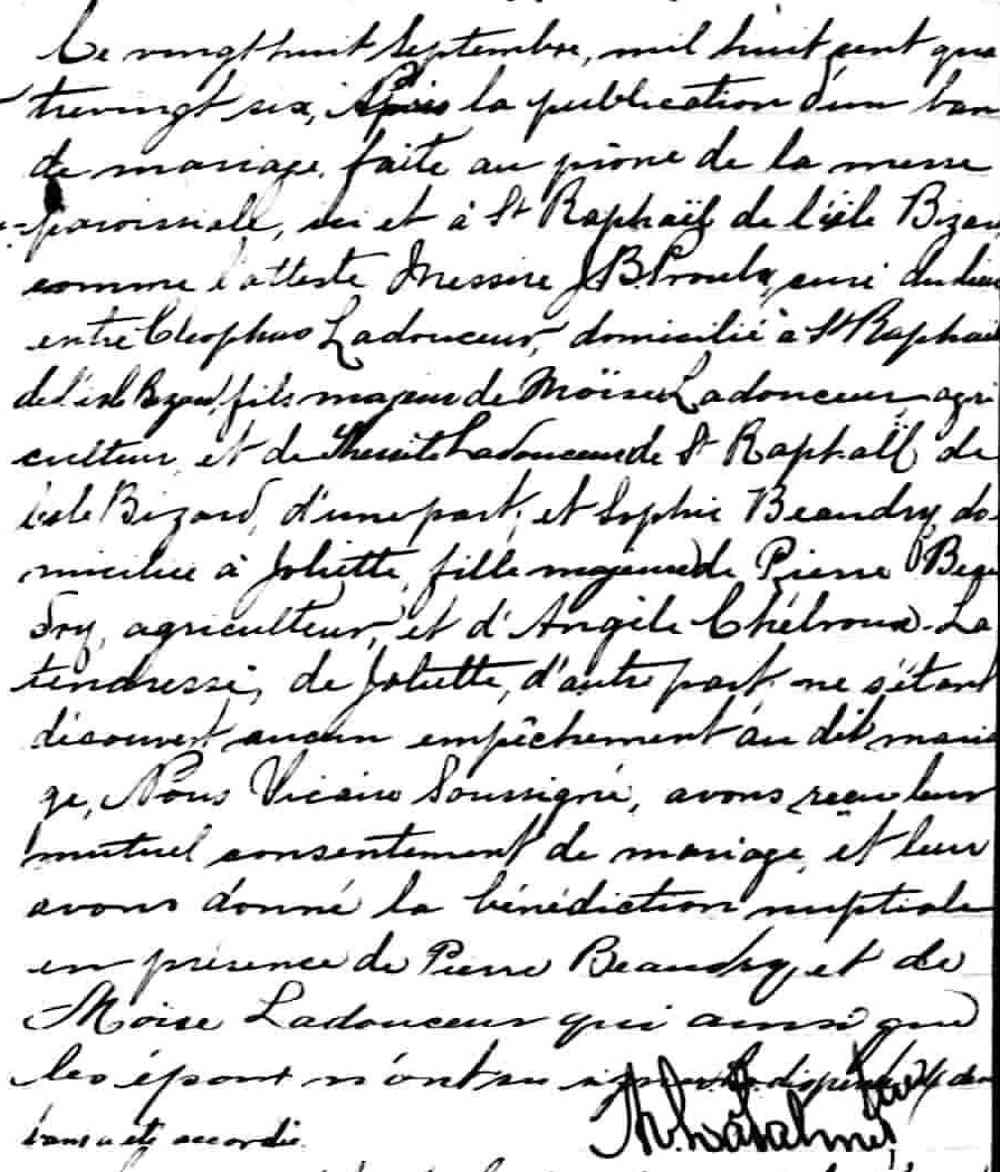 Ce vingt huit Septembre, mil huit cent qua
trevingt six, Après la publication d'un ban
de mariage, faite au prône de la messe
paroissiale, ici et à St Raphaël de l'isle Bizard
comme l'atteste Messire J.B. Proulx, curé du lieu
entre Cleophas Ladouceur, domicilié à St Raphaël
de l'isle Bizard, fils majeur de Moïse Ladouceur, agri
culteur, et de Ladouceur de St Raphaël de
l'isle Bizard, d'une part; et Sophie Beaudry do-
miciliée à Joliette, fille majeure de Pierre Beau
dry, agriculteur, et d'Angèle La
tendresse, de Joliette, d'autre part. ne s'étant
découvert aucun empêchement au dit maria
ge, Nous Vicaire Soussigné, avons reçu leur
mutuel consentement de mariage, et leur
avons donné la bénédiction nuptiale
en présence de Pierre Beaudry, et de
Moïse Ladouceur qui ainsi que
les époux n'ont su signer. dispense de
bans a été accordée.